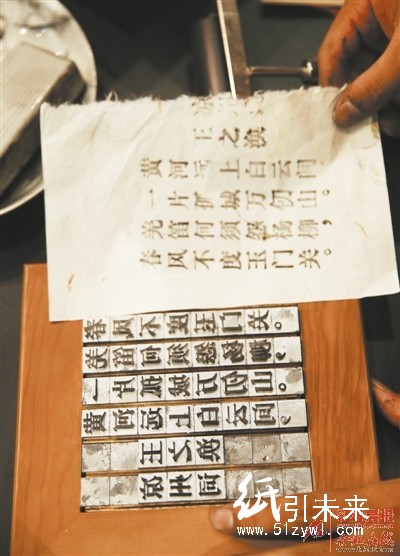 王之涣
黄河远上白云间
一片孤城万仞山。
羌笛何须怨杨柳，
春风不度玉门关。
春风不度玉门关。
羌笛何须怨杨柳，
一片孤城万仞山。
黄河远上白云间，
王之涣
凉州词
纸引未来
www.51zywl.com